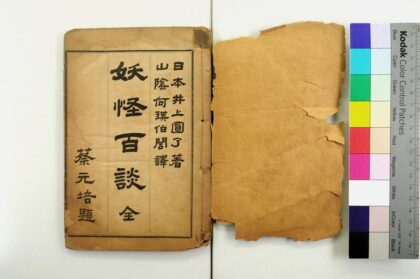 日本井上圓了著
山陰何琪伯閶譯
妖怪百談 全
蔡元培題
Kodak Color Control Patches
Blue
Cyan
Green
Yellow
Red
Magenta
White
3/Color
Black